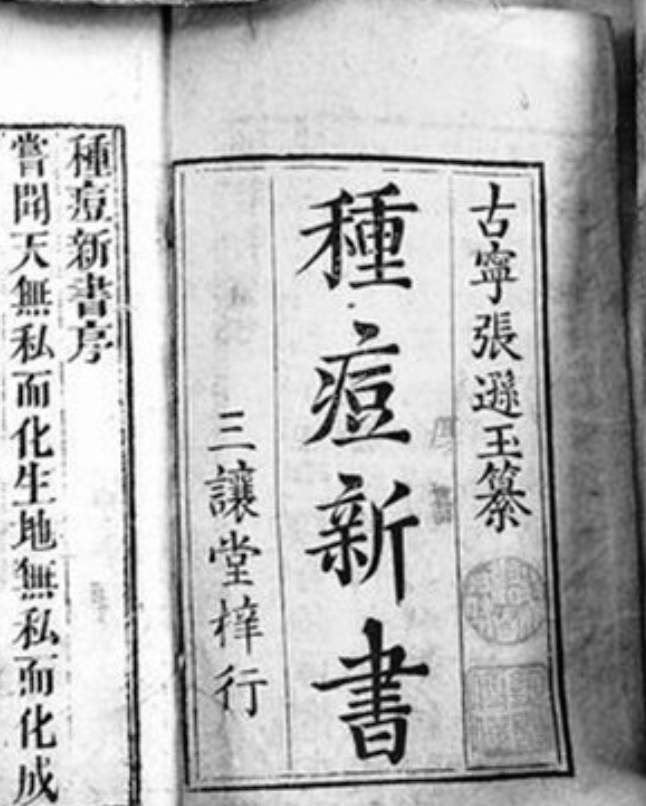 古寧張遜玉纂
種痘新書
三讓堂梓行
種痘新書序
嘗聞天無私而化生地無私而化成